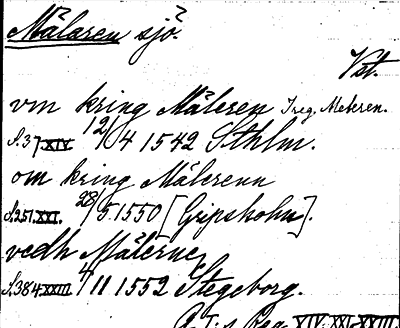 Mälaren sjö.
Vst.
vm kring Mäleren I reg. Meleren.
S. 37 XIV 12/04 1542 Sthlm.
om kring Mälerenn
S. 251 XXI. 28/5 1550 [Gripsholm].
vedh Mälerne
S. 384 XXIII 4/11 1552 Stegeborg.
G. I:s Reg. XIV. XXI. XXIII